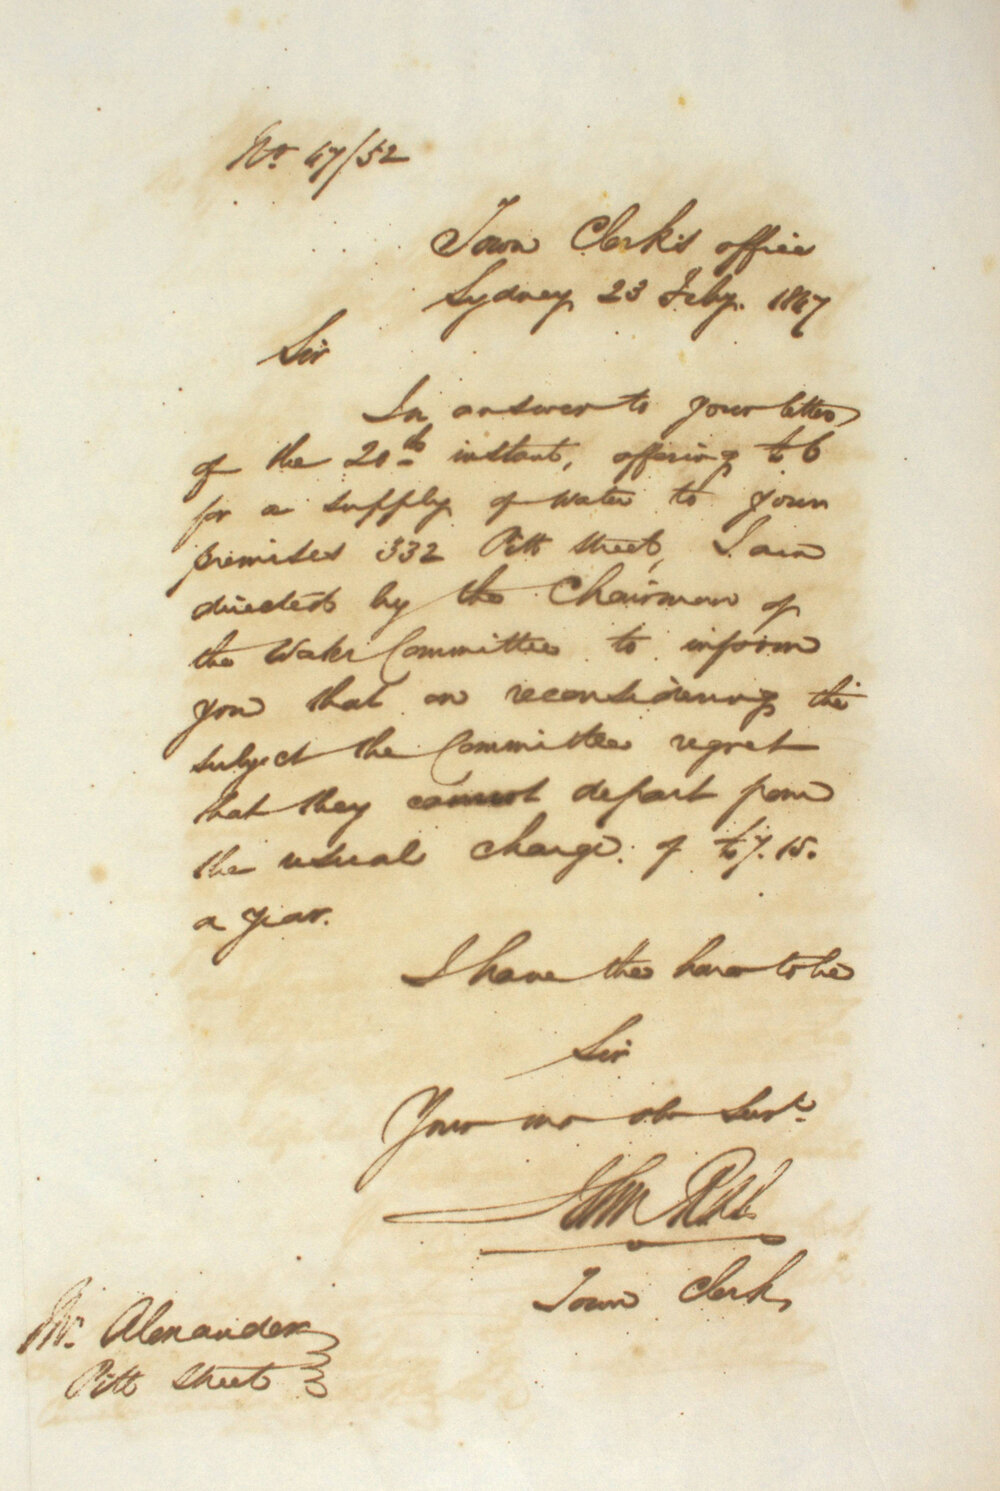 No. 47/52
Town Clerk's office
Sydney 23 Feby. 1847
Sir
In answer to your letter
of the 20th instant, offering £6
for a supply of water to your
premises 332 Pitt Street, I am
directed by the Chairman of
the Water Committee to inform
you that on reconsidering the
subject the Committee regret
that they cannot depart from
the usual charge of £7.15.
a year.
I have the honor to be
Sir
Your mo ob Servt.
John Rae
Town Clerk
Mr. Alexander
Pitt Street